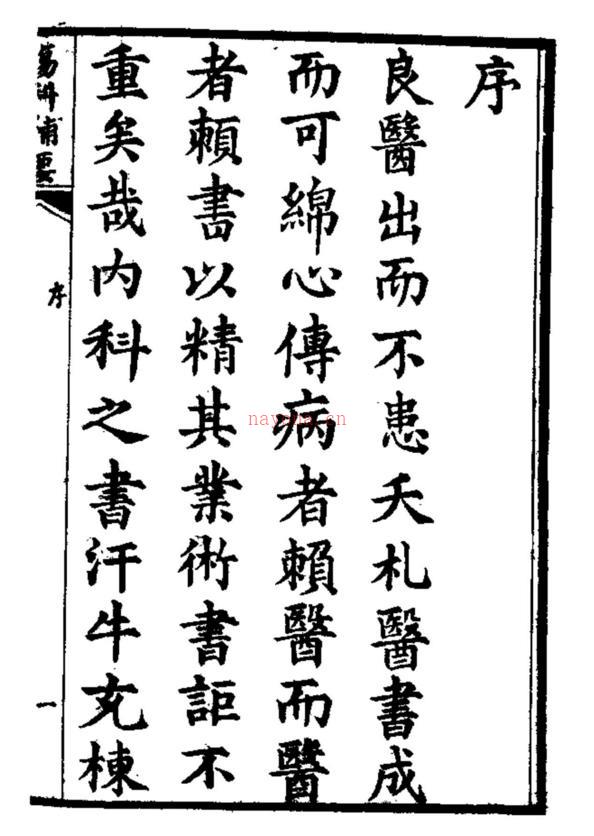 序
良醫出而不患夭札醫書成
而可綿心傳病者賴醫而醫
者賴書以精其業術書詎不
重矣哉內科之書汗牛充棟
傷科補要
序
一
nayona.cn